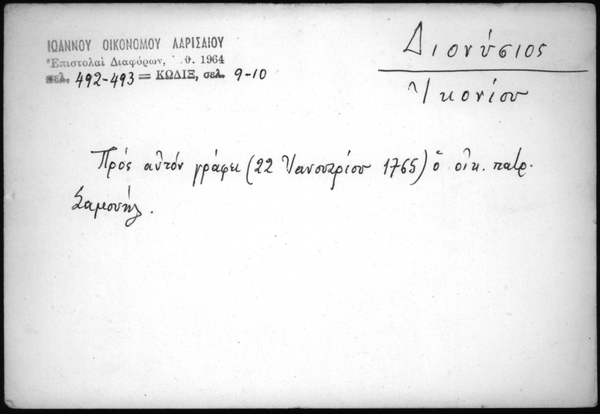 ΙΩΑΝΝΟΥ ΟΙΚΟΝΟΜΟΥ ΛΑΡΙΣΑΙΟΥ
Ἐπιστολαὶ Διαφόρων, θ. 1964
σελ. 492-493 = ΚΩΔΙΞ, σελ. 9-10
Διονύσιος
Ἰκονίου
Πρὸς αὐτὸν γράφει (22 Ἰανουαρίου 1765) ὁ οἰκ. πατρ.
Σαμουήλ.